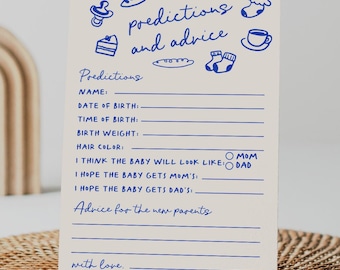 predictions
and advice
Predictions
NAME:
DATE OF BIRTH:
TIME OF BIRTH:
BIRTH WEIGHT:
HAIR COLOR:
I THINK THE BABY WILL LOOK LIKE: MOM
DAD
I HOPE THE BABY GETS MOM'S:
I HOPE THE BABY GETS DAD'S:
Advice for the new parents
with love,